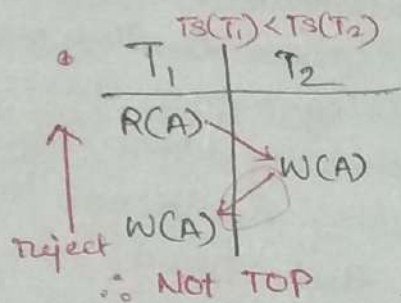 TS(T₁) < TS(T₂)
T₁ T₂
R(A)
W(A)
reject W(A)
∴ Not TOP